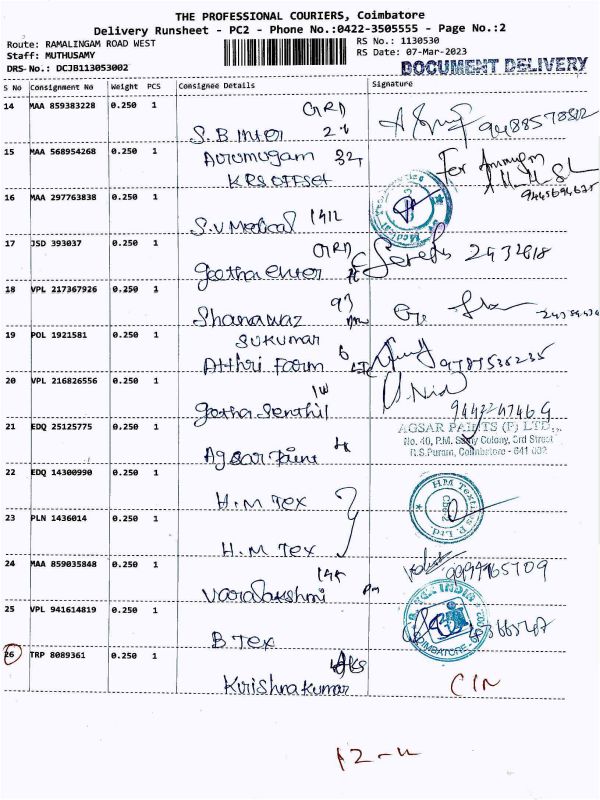 THE PROFESSIONAL COURIERS, Coimbatore
Delivery Runsheet - PC2 - Phone No.:0422-3505555 - Page No.:2
Route: RAMALINGAM ROAD WEST
RS No.: 1130530
Staff: MUTHUSAMY
RS Date: 07-Mar-2023
DRS-No.: DCJB113053002
DOCUMENT DELIVERY
S No Consignment No Weight Pcs Consignee Details Signature
14 MAA 859383228 0.250 1
GRD
S.B Inter
9488578812
15 MAA 568954268 0.250 1
Aurumugam 32
KRS OFFset
For
9445694635
16 MAA 297763838 0.250 1
S.V Medical 1412
17 JSD 393037 0.250 1
GRD
Geetha Enter
2432618
18 VPL 217367926 0.250 1
93
Shanawaz
19 POL 1921581 0.250 1
Sukumar
Atthri Farm 6
9787536235
20 VPL 216826556 0.250 1
Geetha Senthil
21 EDQ 25125775 0.250 1
Agsar Paint
AGSAR PAINTS (P) LTD.,
No. 40, P.M. Samy Colony, 3rd Street
R.S.Puram, Coimbatore - 641 002
22 EDQ 14300990 0.250 1
H.M Tex
H.M Textiles P. Ltd.
Cbe-2
23 PLN 1436014 0.250 1
H.M Tex
24 MAA 859035848 0.250 1
Varalakshmi
25 VPL 941614819 0.250 1
B Tex
INDIA
COIMBATORE
26 TRP 8089361 0.250 1
Krishnakumar
CIN